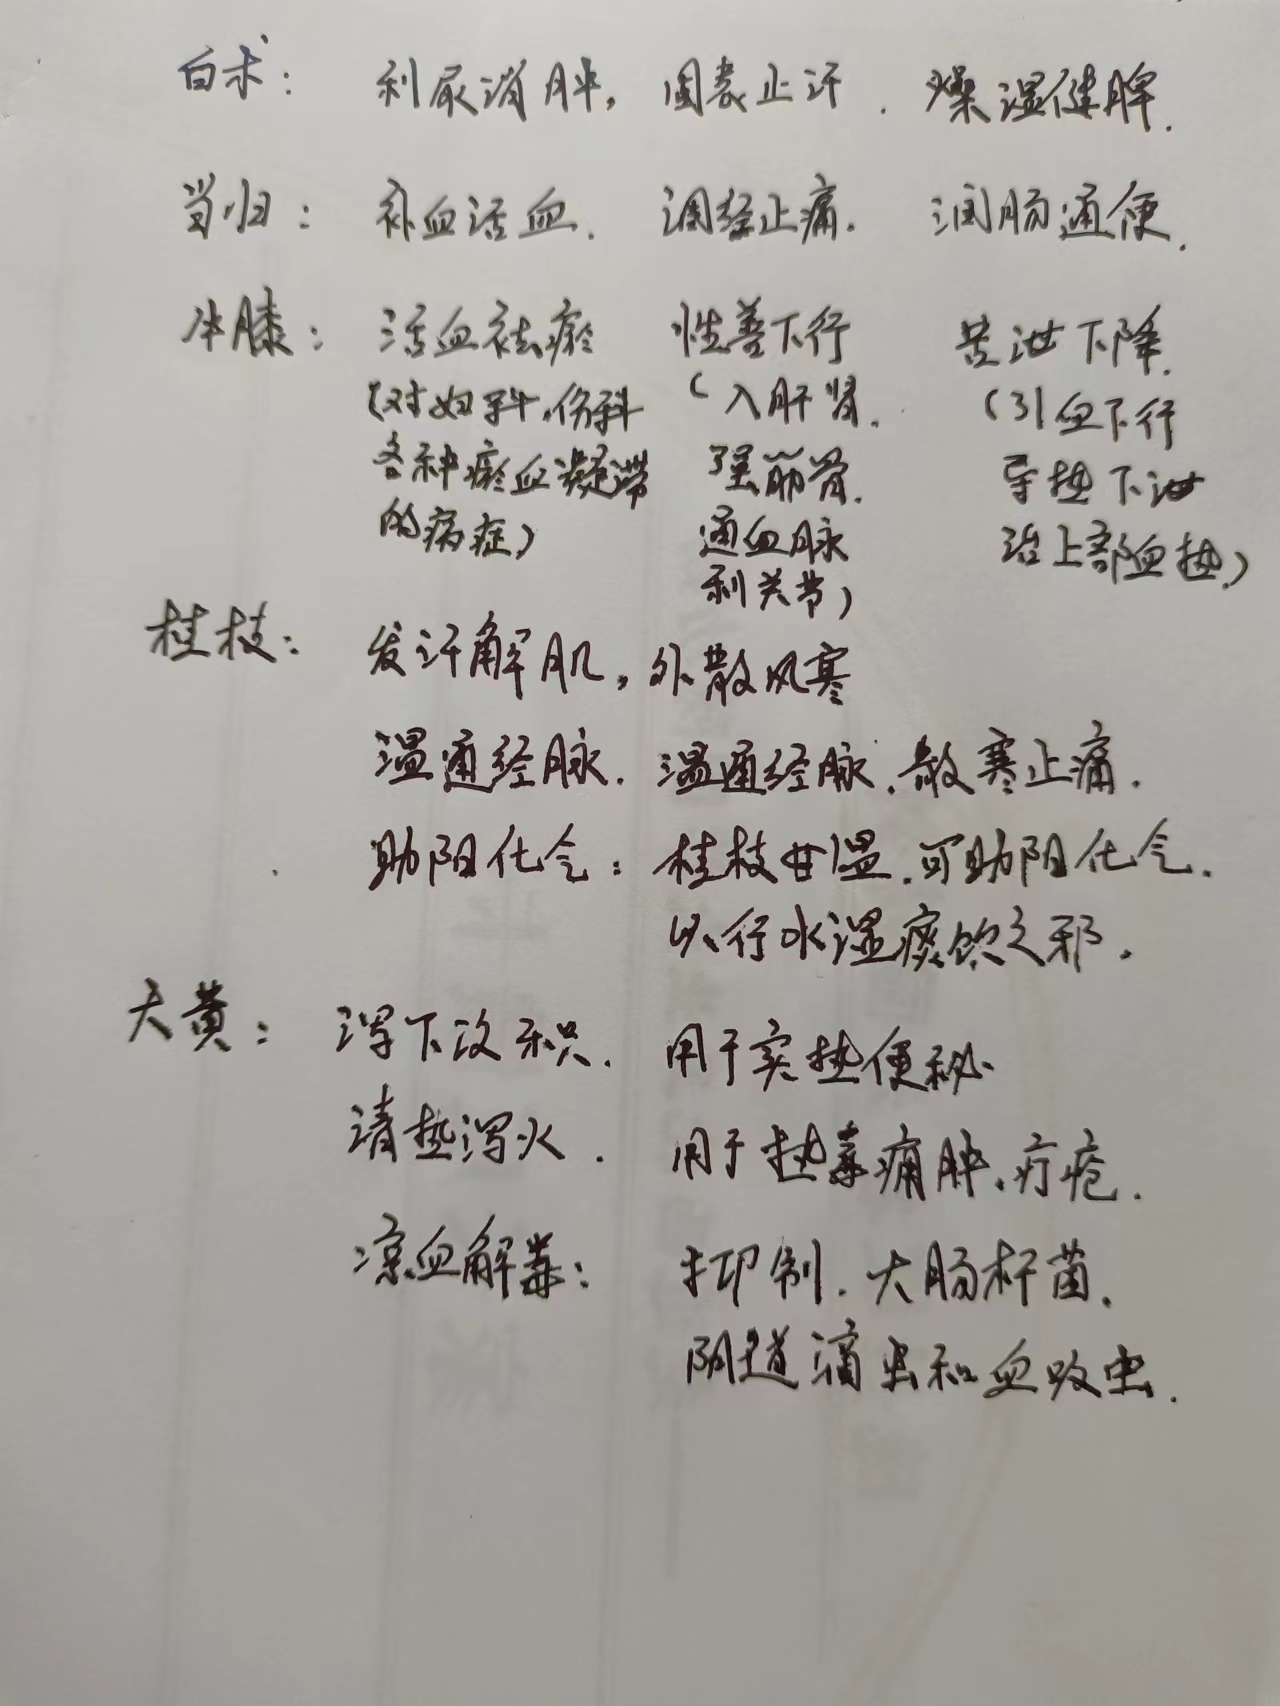 白术： 利尿消肿， 固表止汗． 燥湿健脾．
当归： 补血活血． 调经止痛． 润肠通便．
牛膝： 活血祛瘀 性善下行 苦泄下降．
（对妇科，伤科 （入肝肾． （引血下行
各种瘀血凝滞 强筋骨． 导热下泄
的病症） 通血脉 治上部血热）
利关节）
桂枝： 发汗解肌，外散风寒
温通经脉． 温通经脉．散寒止痛．
助阳化气： 桂枝甘温．可助阳化气．
以行水湿痰饮之邪．
大黄： 泻下攻积． 用于实热便秘
清热泻火． 用于热毒痈肿．疔疮．
凉血解毒： 抑制．大肠杆菌．
阴道滴虫和血吸虫．